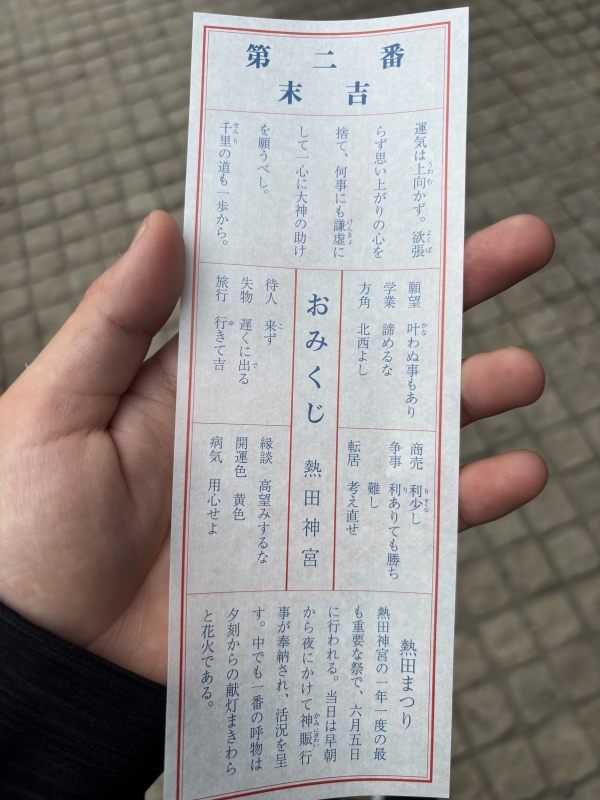 第二番
末吉
運気は上向かず。欲張
らず思い上がりの心を
捨て、何事にも謙虚に
して一心に大神の助け
を願うべし。
千里の道も一歩から。
願望 叶わぬ事もあり
学業 諦めるな
方角 北西よし
おみくじ 熱田神宮
待人 来ず
失物 遅くに出る
旅行 行きて吉
商売 利少し
争事 利ありても勝ち
難し
転居 考え直せ
縁談 高望みするな
開運色 黄色
病気 用心せよ
熱田まつり
熱田神宮の一年一度の最
も重要な祭で、六月五日
に行われる。当日は早朝
から夜にかけて神賑行
事が奉納され、活況を呈
す。中でも一番の呼物は
夕刻からの献灯まきわら
と花火である。